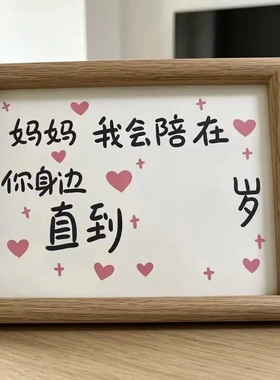 妈妈 我会陪在
你身边
直到 岁